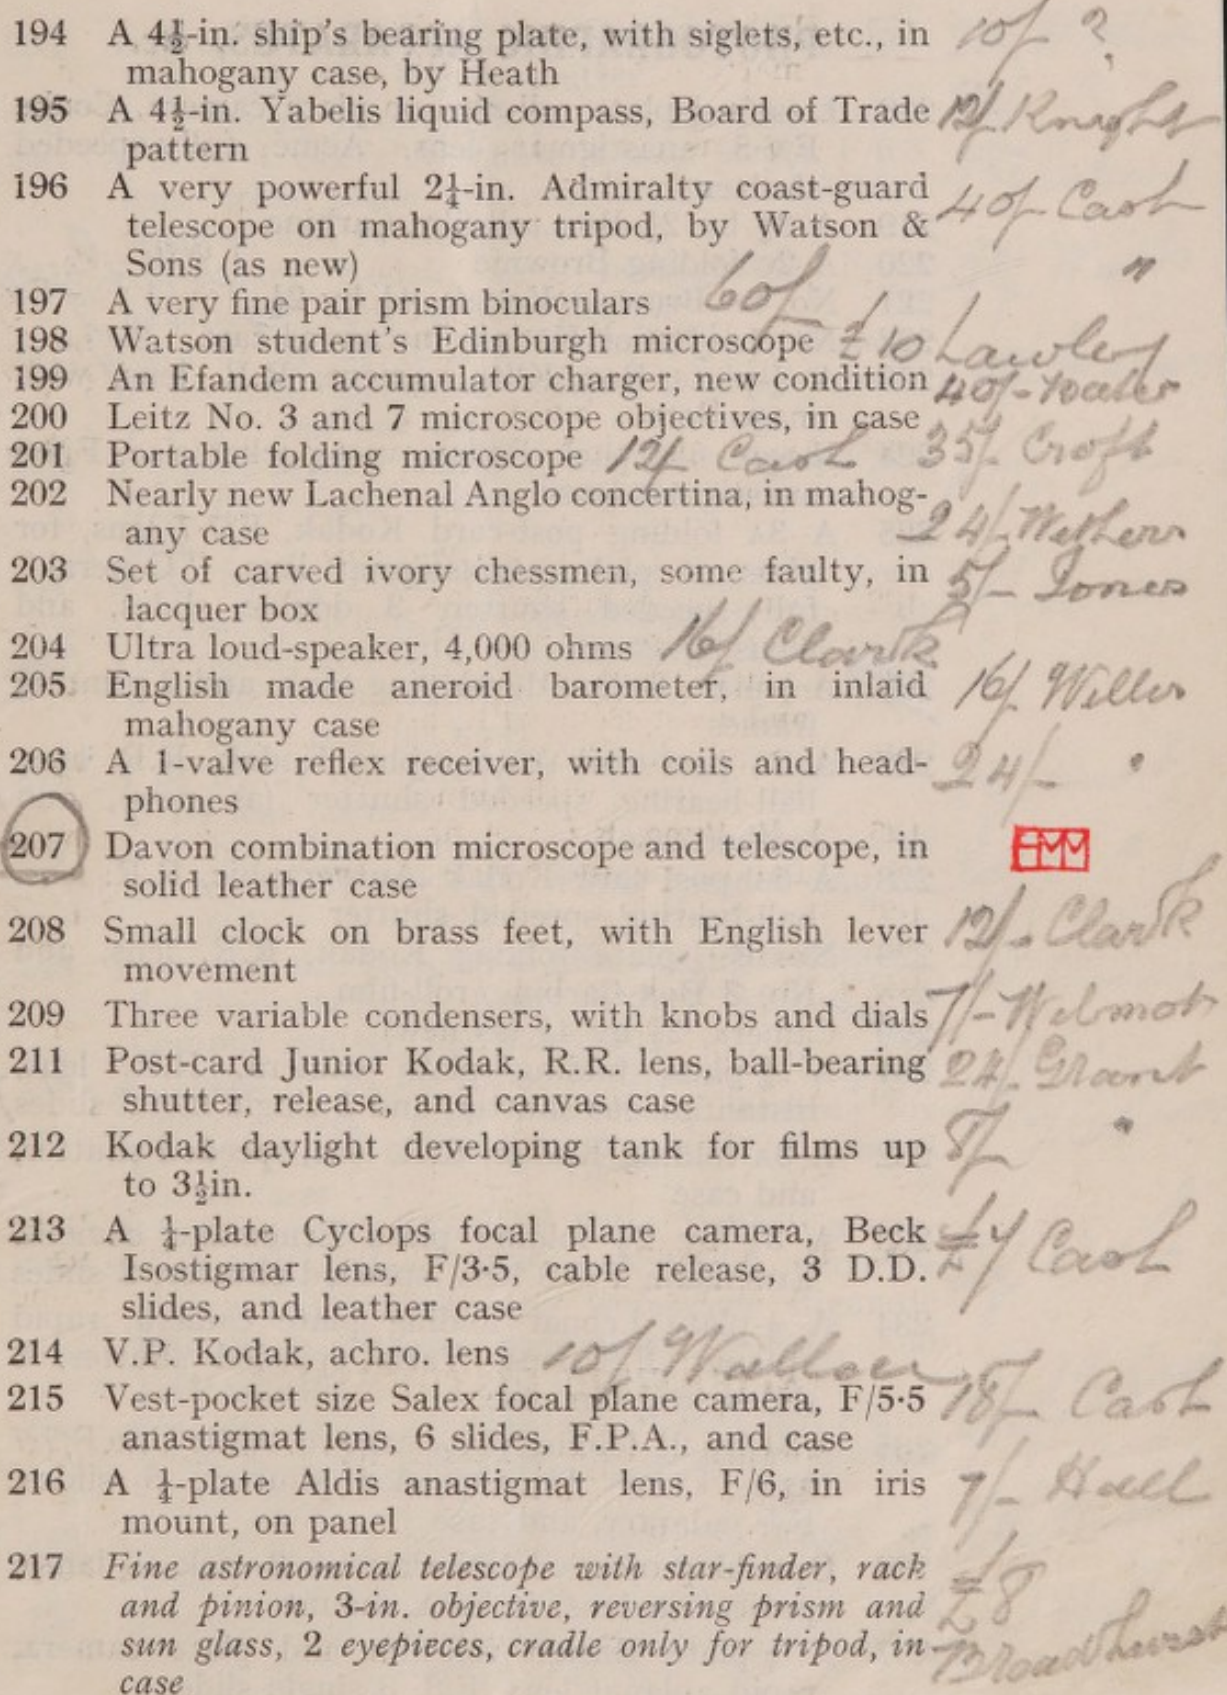 194 A 4½-in. ship's bearing plate, with siglets, etc., in 10/- ?
mahogany case, by Heath
195 A 4½-in. Yabelis liquid compass, Board of Trade 12/- Knight
pattern
196 A very powerful 2¼-in. Admiralty coast-guard 40/- Cash
telescope on mahogany tripod, by Watson &
Sons (as new)
197 A very fine pair prism binoculars 60/- "
198 Watson student's Edinburgh microscope £10 Lawley
199 An Efandem accumulator charger, new condition 40/-
200 Leitz No. 3 and 7 microscope objectives, in case 35/- Croft
201 Portable folding microscope 12/- Cash
202 Nearly new Lachenal Anglo concertina, in mahog- 24/- Withers
any case
203 Set of carved ivory chessmen, some faulty, in 5/- Jones
lacquer box
204 Ultra loud-speaker, 4,000 ohms 16/- Clark
205 English made aneroid barometer, in inlaid 16/- Willis
mahogany case
206 A 1-valve reflex receiver, with coils and head- 24/- "
phones
207 Davon combination microscope and telescope, in
solid leather case
208 Small clock on brass feet, with English lever 12/- Clark
movement
209 Three variable condensers, with knobs and dials 7/- Wilmot
211 Post-card Junior Kodak, R.R. lens, ball-bearing 24/- Grant
shutter, release, and canvas case
212 Kodak daylight developing tank for films up 8/- "
to 3½in.
213 A ¼-plate Cyclops focal plane camera, Beck £4 Cash
Isostigmar lens, F/3·5, cable release, 3 D.D.
slides, and leather case
214 V.P. Kodak, achro. lens 10/- Wallace
215 Vest-pocket size Salex focal plane camera, F/5·5 18/- Cash
anastigmat lens, 6 slides, F.P.A., and case
216 A ¼-plate Aldis anastigmat lens, F/6, in iris 7/- Hall
mount, on panel
217 Fine astronomical telescope with star-finder, rack £8
and pinion, 3-in. objective, reversing prism and
sun glass, 2 eyepieces, cradle only for tripod, in Broadhurst
case